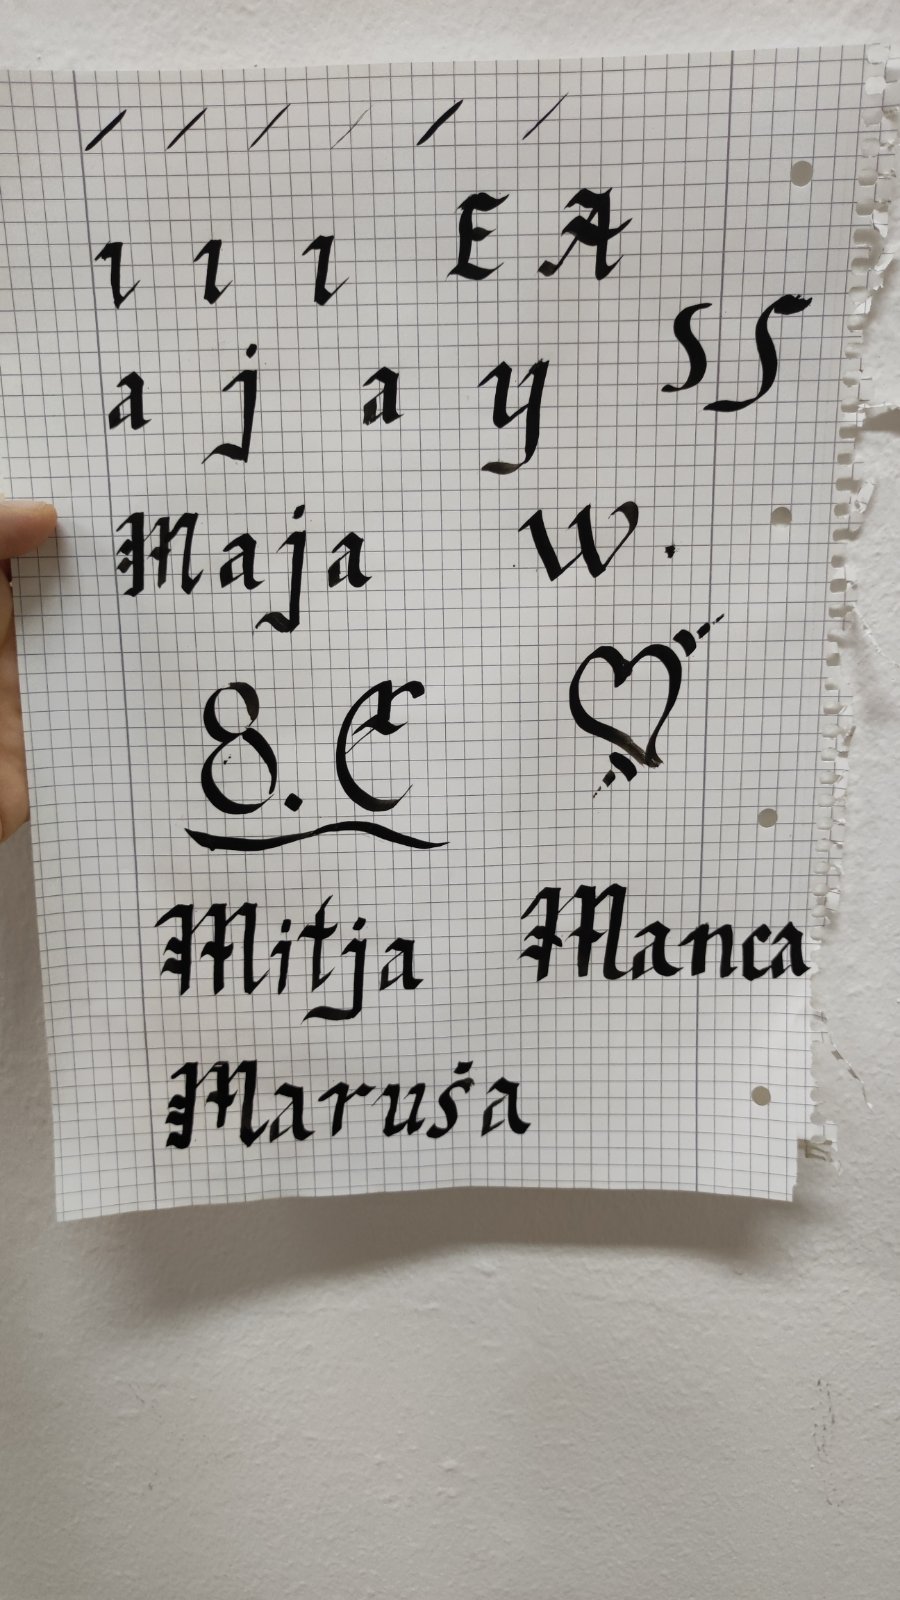 ı ı ı E A
a j a y S S
Maja W.
8. C
Mitja Manca
Maruša